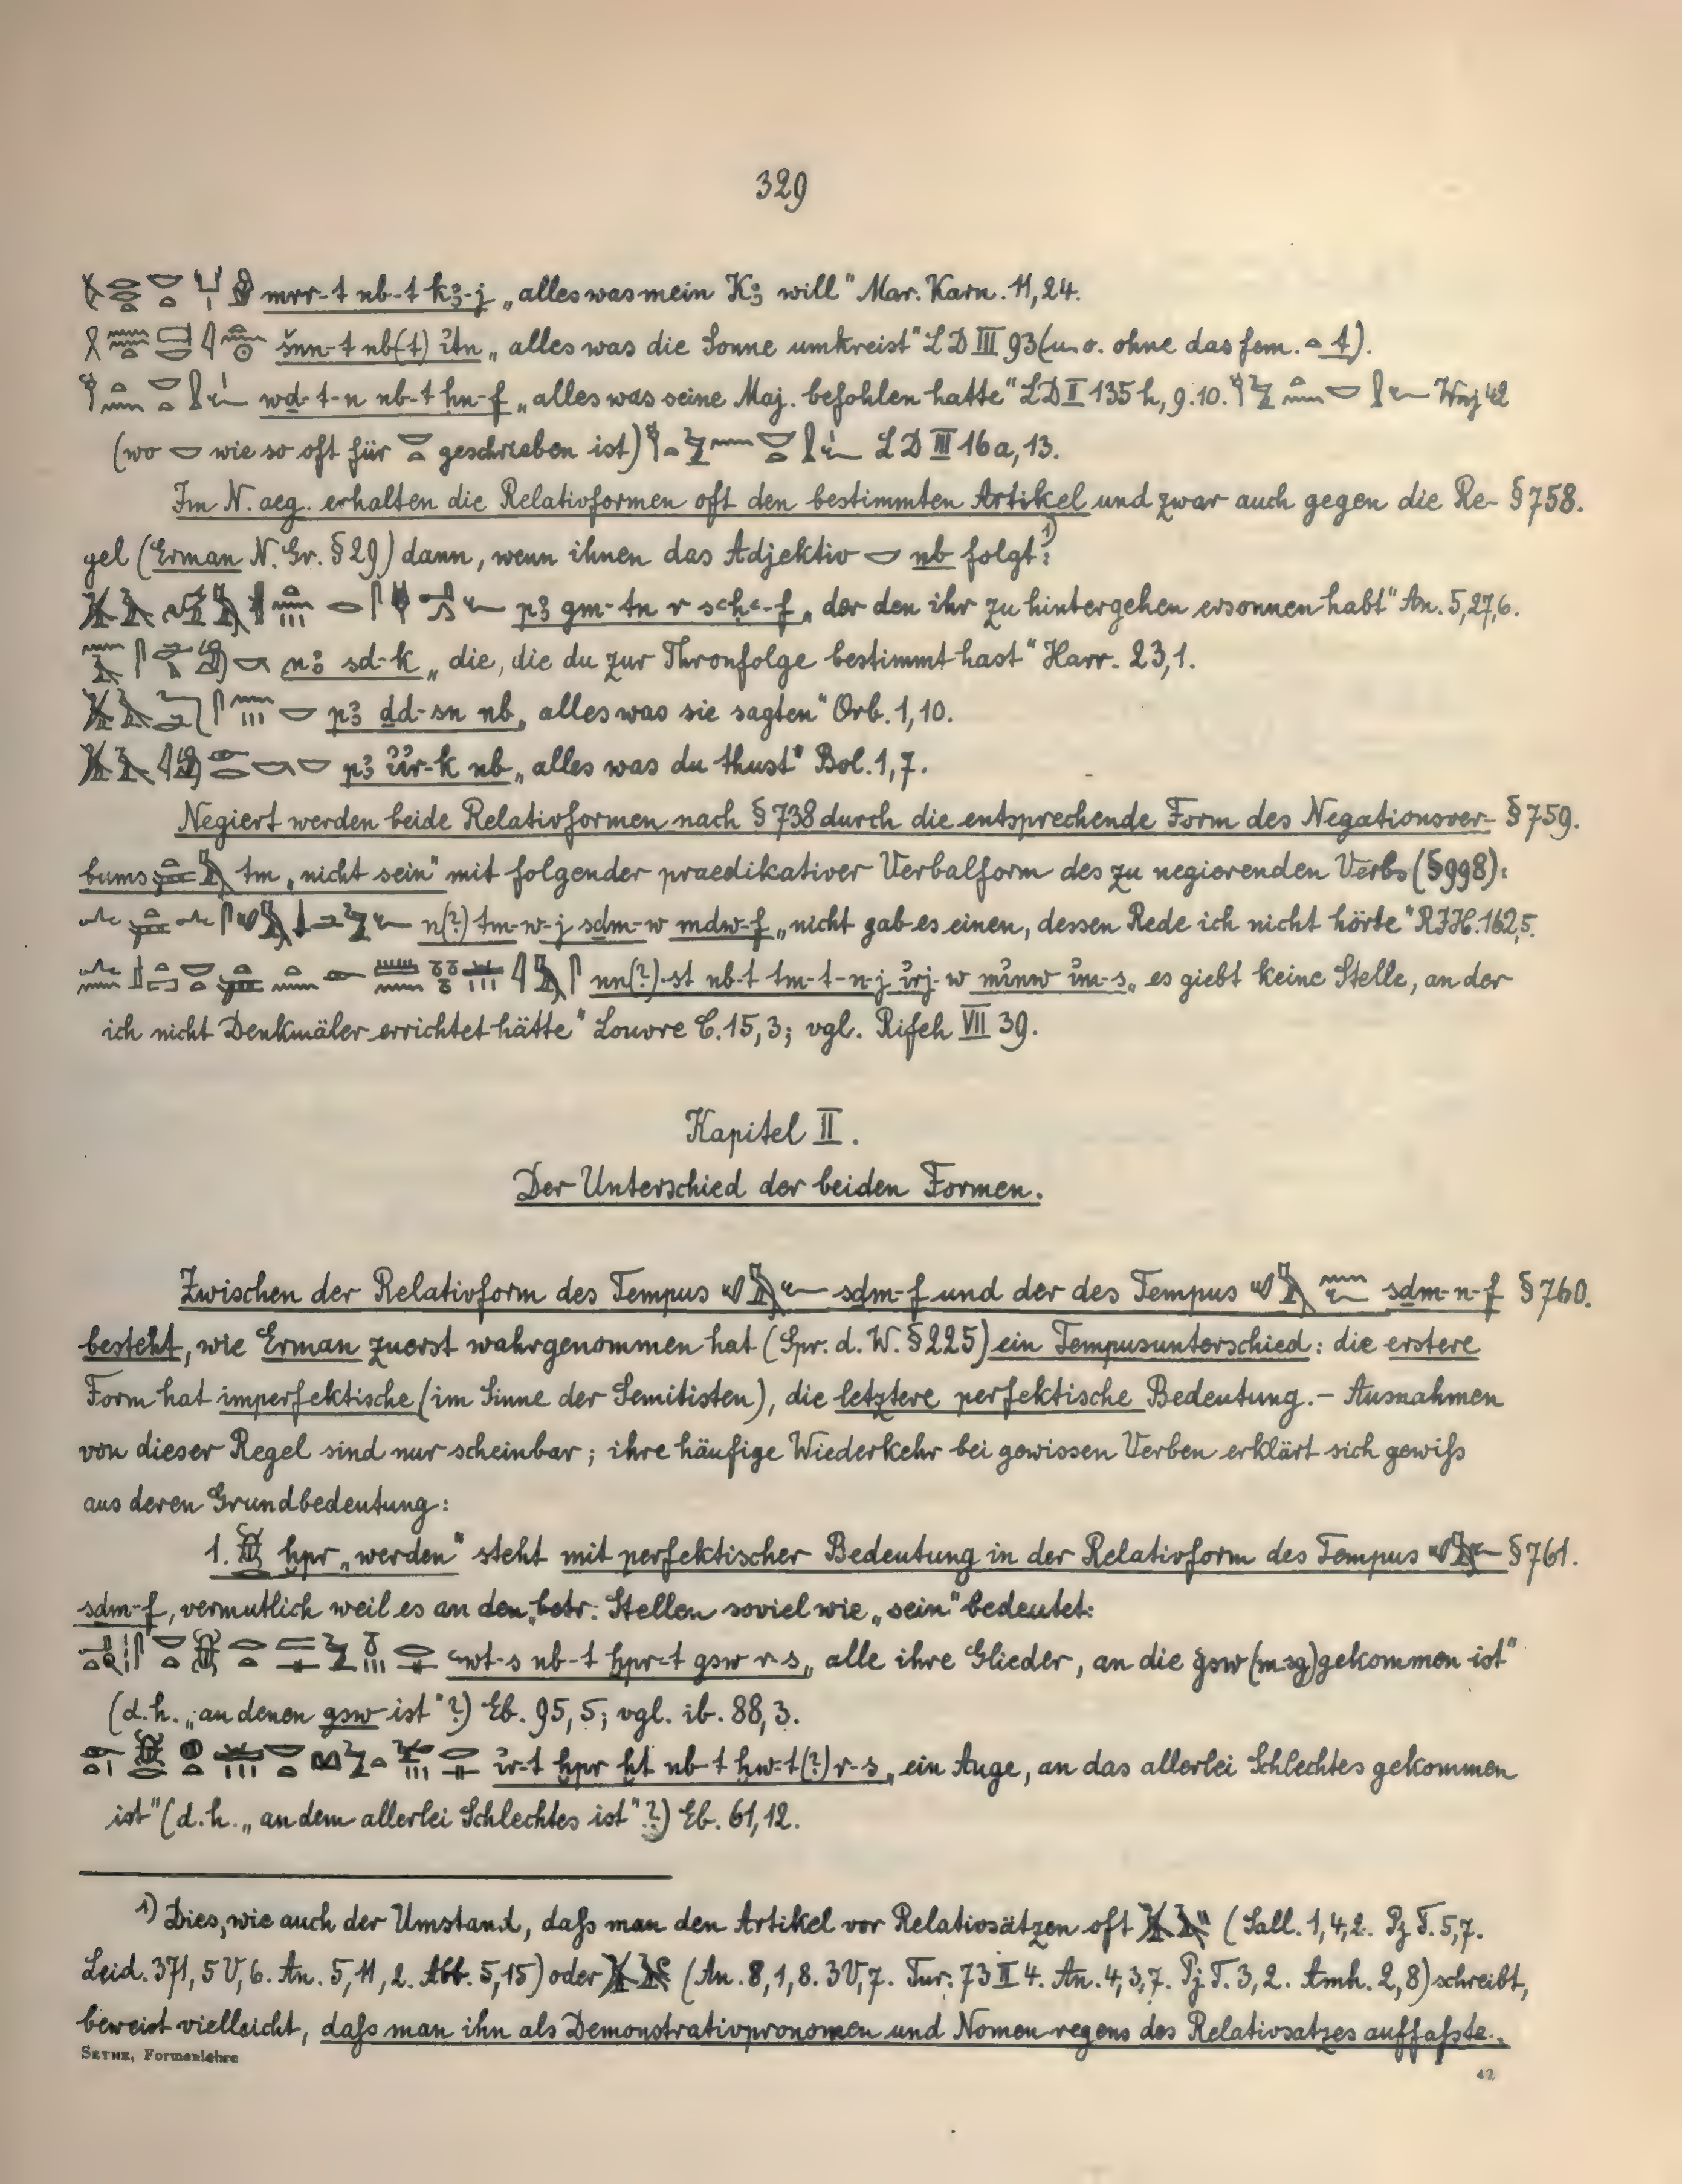 329
mrr-t nb-t kꜣ-j „alles was mein Kꜣ will“ Mar. Karn. 11,24.
šnn-t nb(t) ꞽtn „alles was die Sonne umkreist“ LD III 93 (u. o. ohne das fem. t).
wḏ-t-n nb-t ḥn-f „alles was seine Maj. befohlen hatte“ LD II 135h, 9.10. Wnj 42
(wo wie so oft für geschrieben ist) LD III 16a, 13.
Im N. aeg. erhalten die Relativformen oft den bestimmten Artikel und zwar auch gegen die Re- § 758.
gel (Erman N. Gr. § 29) dann, wenn ihnen das Adjektiv nb folgt¹⁾:
pꜣ gm-tn r sꜥḥꜥ-f „der den ihr zu hintergehen ersonnen habt“ An. 5,27,6.
nꜣ sd-k „die, die du zur Thronfolge bestimmt hast“ Harr. 23,1.
pꜣ ḏd-sn nb „alles was sie sagten“ Orb. 1,10.
pꜣ ꞽꞽr-k nb „alles was du thust“ Bol. 1,7.
Negiert werden beide Relativformen nach § 738 durch die entsprechende Form des Negationsver- § 759.
bums tm „nicht sein“ mit folgender praedikativer Verbalform des zu negierenden Verbs (§ 998):
n(?) tm-w-j sḏm-w mdw-f „nicht gab es einen, dessen Rede ich nicht hörte“ RIH. 162,5.
nn(?)-st nb-t tm-t-n-j ꞽrj-w mꞽnw ꞽm-s „es giebt keine Stelle, an der
ich nicht Denkmäler errichtet hätte“ Louvre C. 15,3; vgl. Rifeh VII 39.
Kapitel II.
Der Unterschied der beiden Formen.
Zwischen der Relativform des Tempus sḏm-f und der des Tempus sḏm-n-f § 760.
besteht, wie Erman zuerst wahrgenommen hat (Spr. d. W. § 225) ein Tempusunterschied: die erstere
Form hat imperfektische (im Sinne der Semitisten), die letztere perfektische Bedeutung. – Ausnahmen
von dieser Regel sind nur scheinbar; ihre häufige Wiederkehr bei gewissen Verben erklärt sich gewiß
aus deren Grundbedeutung:
1. ḫpr „werden“ steht mit perfektischer Bedeutung in der Relativform des Tempus § 761.
sḏm-f, vermutlich weil es an den betr. Stellen soviel wie „sein“ bedeutet:
ꜥwt-s nb-t ḫpr-t gsw r-s „alle ihre Glieder, an die gsw (m. sg) gekommen ist“
(d. h. „an denen gsw ist“?) Eb. 95,5; vgl. ib. 88,3.
ꞽr-t ḫpr ḫt nb-t ḥw-t(?) r-s „ein Auge, an das allerlei Schlechtes gekommen
ist“ (d. h. „an dem allerlei Schlechtes ist“?) Eb. 61,12.
¹⁾ Dies, wie auch der Umstand, daß man den Artikel vor Relativsätzen oft (Sall. 1,4,2. Pj T. 5,7.
Leid. 371, 5 V, 6. An. 5,11,2. Abb. 5,15) oder (An. 8,1,8. 3 V, 7. Tur. 73 II 4. An. 4,3,7. Pj T. 3,2. Amh. 2,8) schreibt,
beweist vielleicht, daß man ihn als Demonstrativpronomen und Nomen regens des Relativsatzes auffaßte.
SETHE, Formenlehre
42